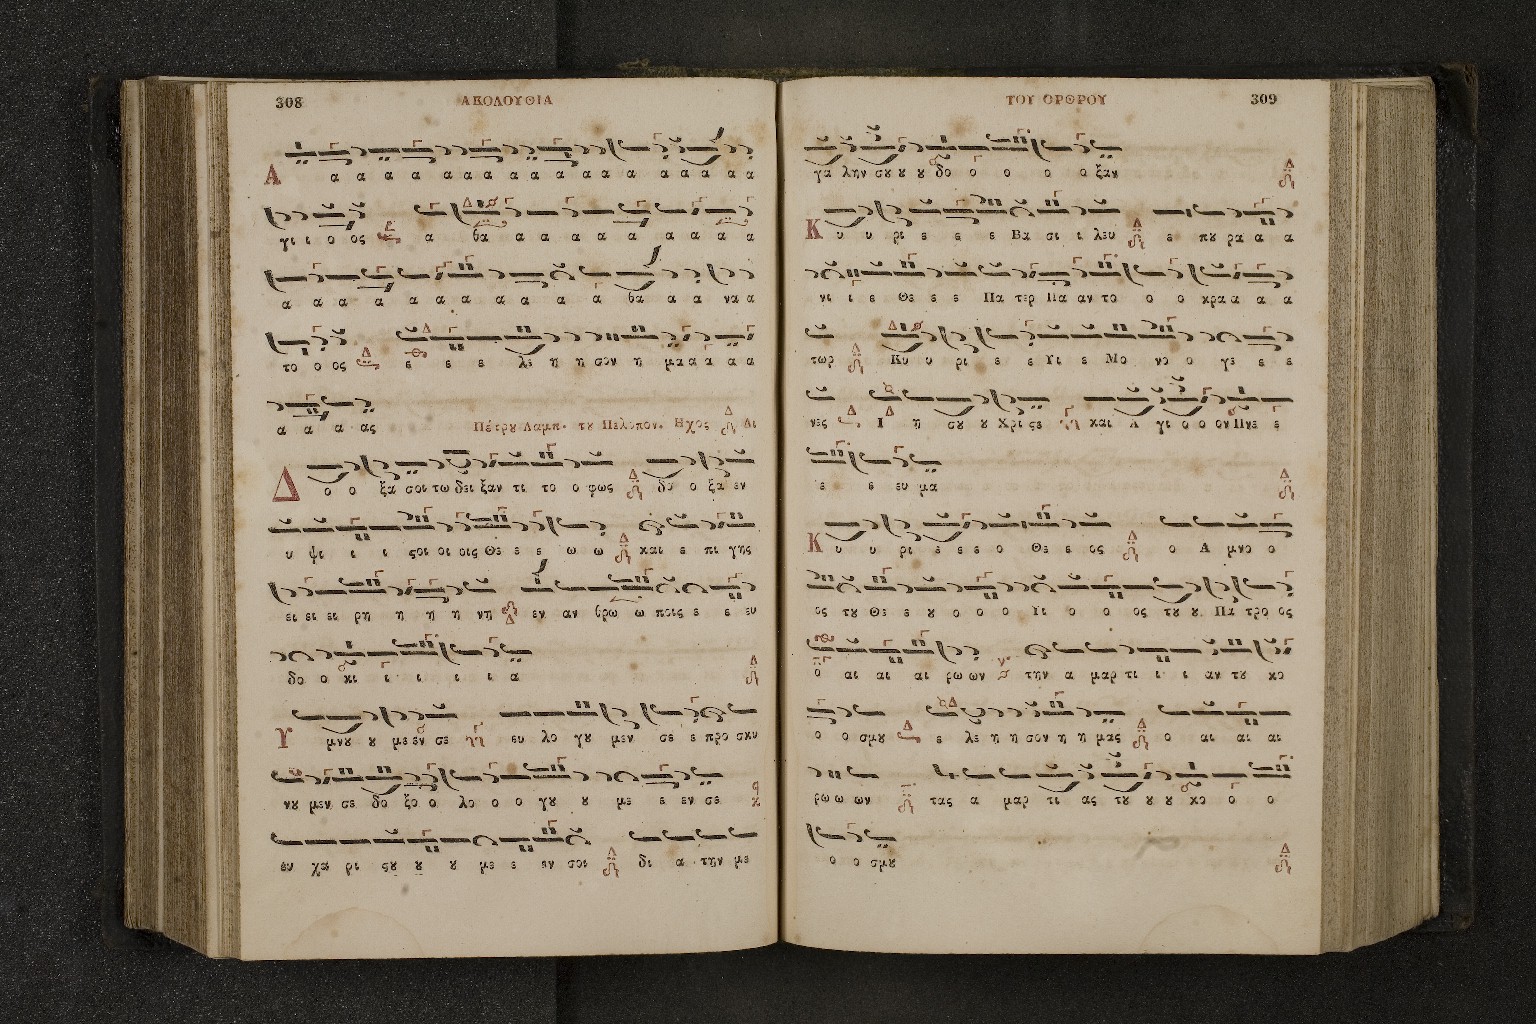 308 ΑΚΟΛΟΥΘΙΑ
Α α α α α α α α α α α α α α α α α
γι ι ο ος α θα α α α α α α α α α
α α α α α α α α α α α θα α α να α
το ο ος ε ε ε λε η η σον η μα α α α α
α α α ας Πέτρȣ Λαμπ. τȣ Πελοπον. Ηχος Δι
Δ ο ο ξα σοι τω δει ξαν τι το ο φως δο ο ξα εν
υ ψι ι ι ϛοι οι οις Θε ε ε ω ω και ε πι γης
ει ει ει ρη η η η νη εν αν θρω ω ποις ε ε ευ
δο ο κι ι ι ι ι α
Υ μνȣ ȣ με εν σε ευ λο γȣ μεν σε ε προ σκυ
νȣ μεν σε δο ξο ο λο ο ο γȣ ȣ με ε εν σε
ευ χα ρι ϛȣ ȣ ȣ με ε εν σοι δι α την με
ΤΟΥ ΟΡΘΡΟΥ 309
γα λην σȣ ȣ ȣ δο ο ο ο ο ξαν
Κ υ υ ρι ε ε ε Βα σι ι λευ ε πȣ ρα α α
νι ι ε Θε ε ε Πα τερ Πα αν το ο ο κρα α α α
τωρ Κυ υ ρι ε ε Υι ε Μο νο ο γε ε ε
νες Ι η σȣ ȣ Χρι ϛε και Α γι ο ο ον Πνε ε
ε ε ευ μα
Κ υ υ ρι ε ε ε ο Θε ε ος ο Α μνο ο
ος τȣ Θε ε ȣ ο ο ο Υι ο ο ος τȣ ȣ Πα τρο ος
ο αι αι αι ρω ων την α μαρ τι ι ι αν τȣ κο
ο ο σμȣ ε λε η η σον η η μας ο αι αι αι
ρω ω ων τας α μαρ τι ας τȣ ȣ ȣ κο ο ο
ο ο σμȣ